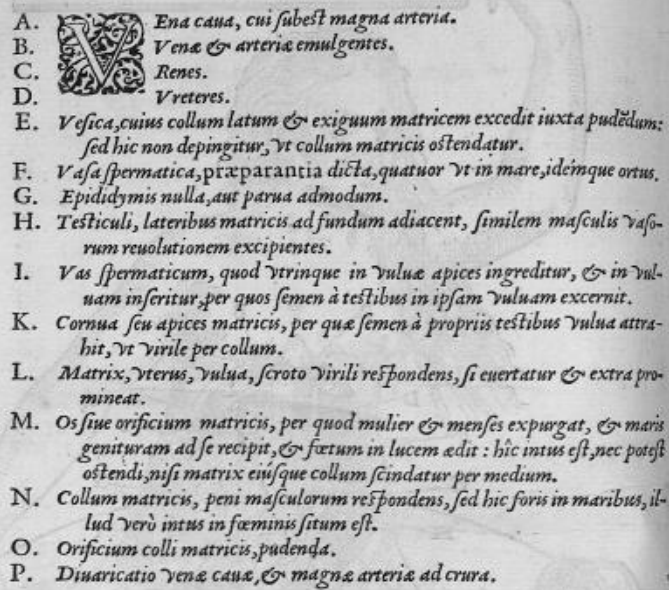 A. VEna caua, cui subest magna arteria.
B. Venæ & arteriæ emulgentes.
C. Renes.
D. Vreteres.
E. Vesica, cuius collum latum & exiguum matricem excedit iuxta pudẽdum:
sed hic non depingitur, vt collum matricis ostendatur.
F. Vasa spermatica, præparantia dicta, quatuor vt in mare, idémque ortus.
G. Epididymis nulla, aut parua admodum.
H. Testiculi, lateribus matricis ad fundum adiacent, similem masculis vaso-
rum reuolutionem excipientes.
I. Vas spermaticum, quod vtrinque in vuluæ apices ingreditur, & in vul-
uam inseritur, per quos semen à testibus in ipsam vuluam excernit.
K. Cornua seu apices matricis, per quæ semen à propriis testibus vulua attra-
hit, vt virile per collum.
L. Matrix, vterus, vulua, scroto virili respondens, si euertatur & extra pro-
mineat.
M. Os siue orificium matricis, per quod mulier & menses expurgat, & maris
genituram ad se recipit, & fœtum in lucem ædit : hîc intus est, nec potest
ostendi, nisi matrix eiúsque collum scindatur per medium.
N. Collum matricis, peni masculorum respondens, sed hic foris in maribus, il-
lud verò intus in fœminis situm est.
O. Orificium colli matricis, pudenda.
P. Diuaricatio venæ cauæ, & magnæ arteriæ ad crura.